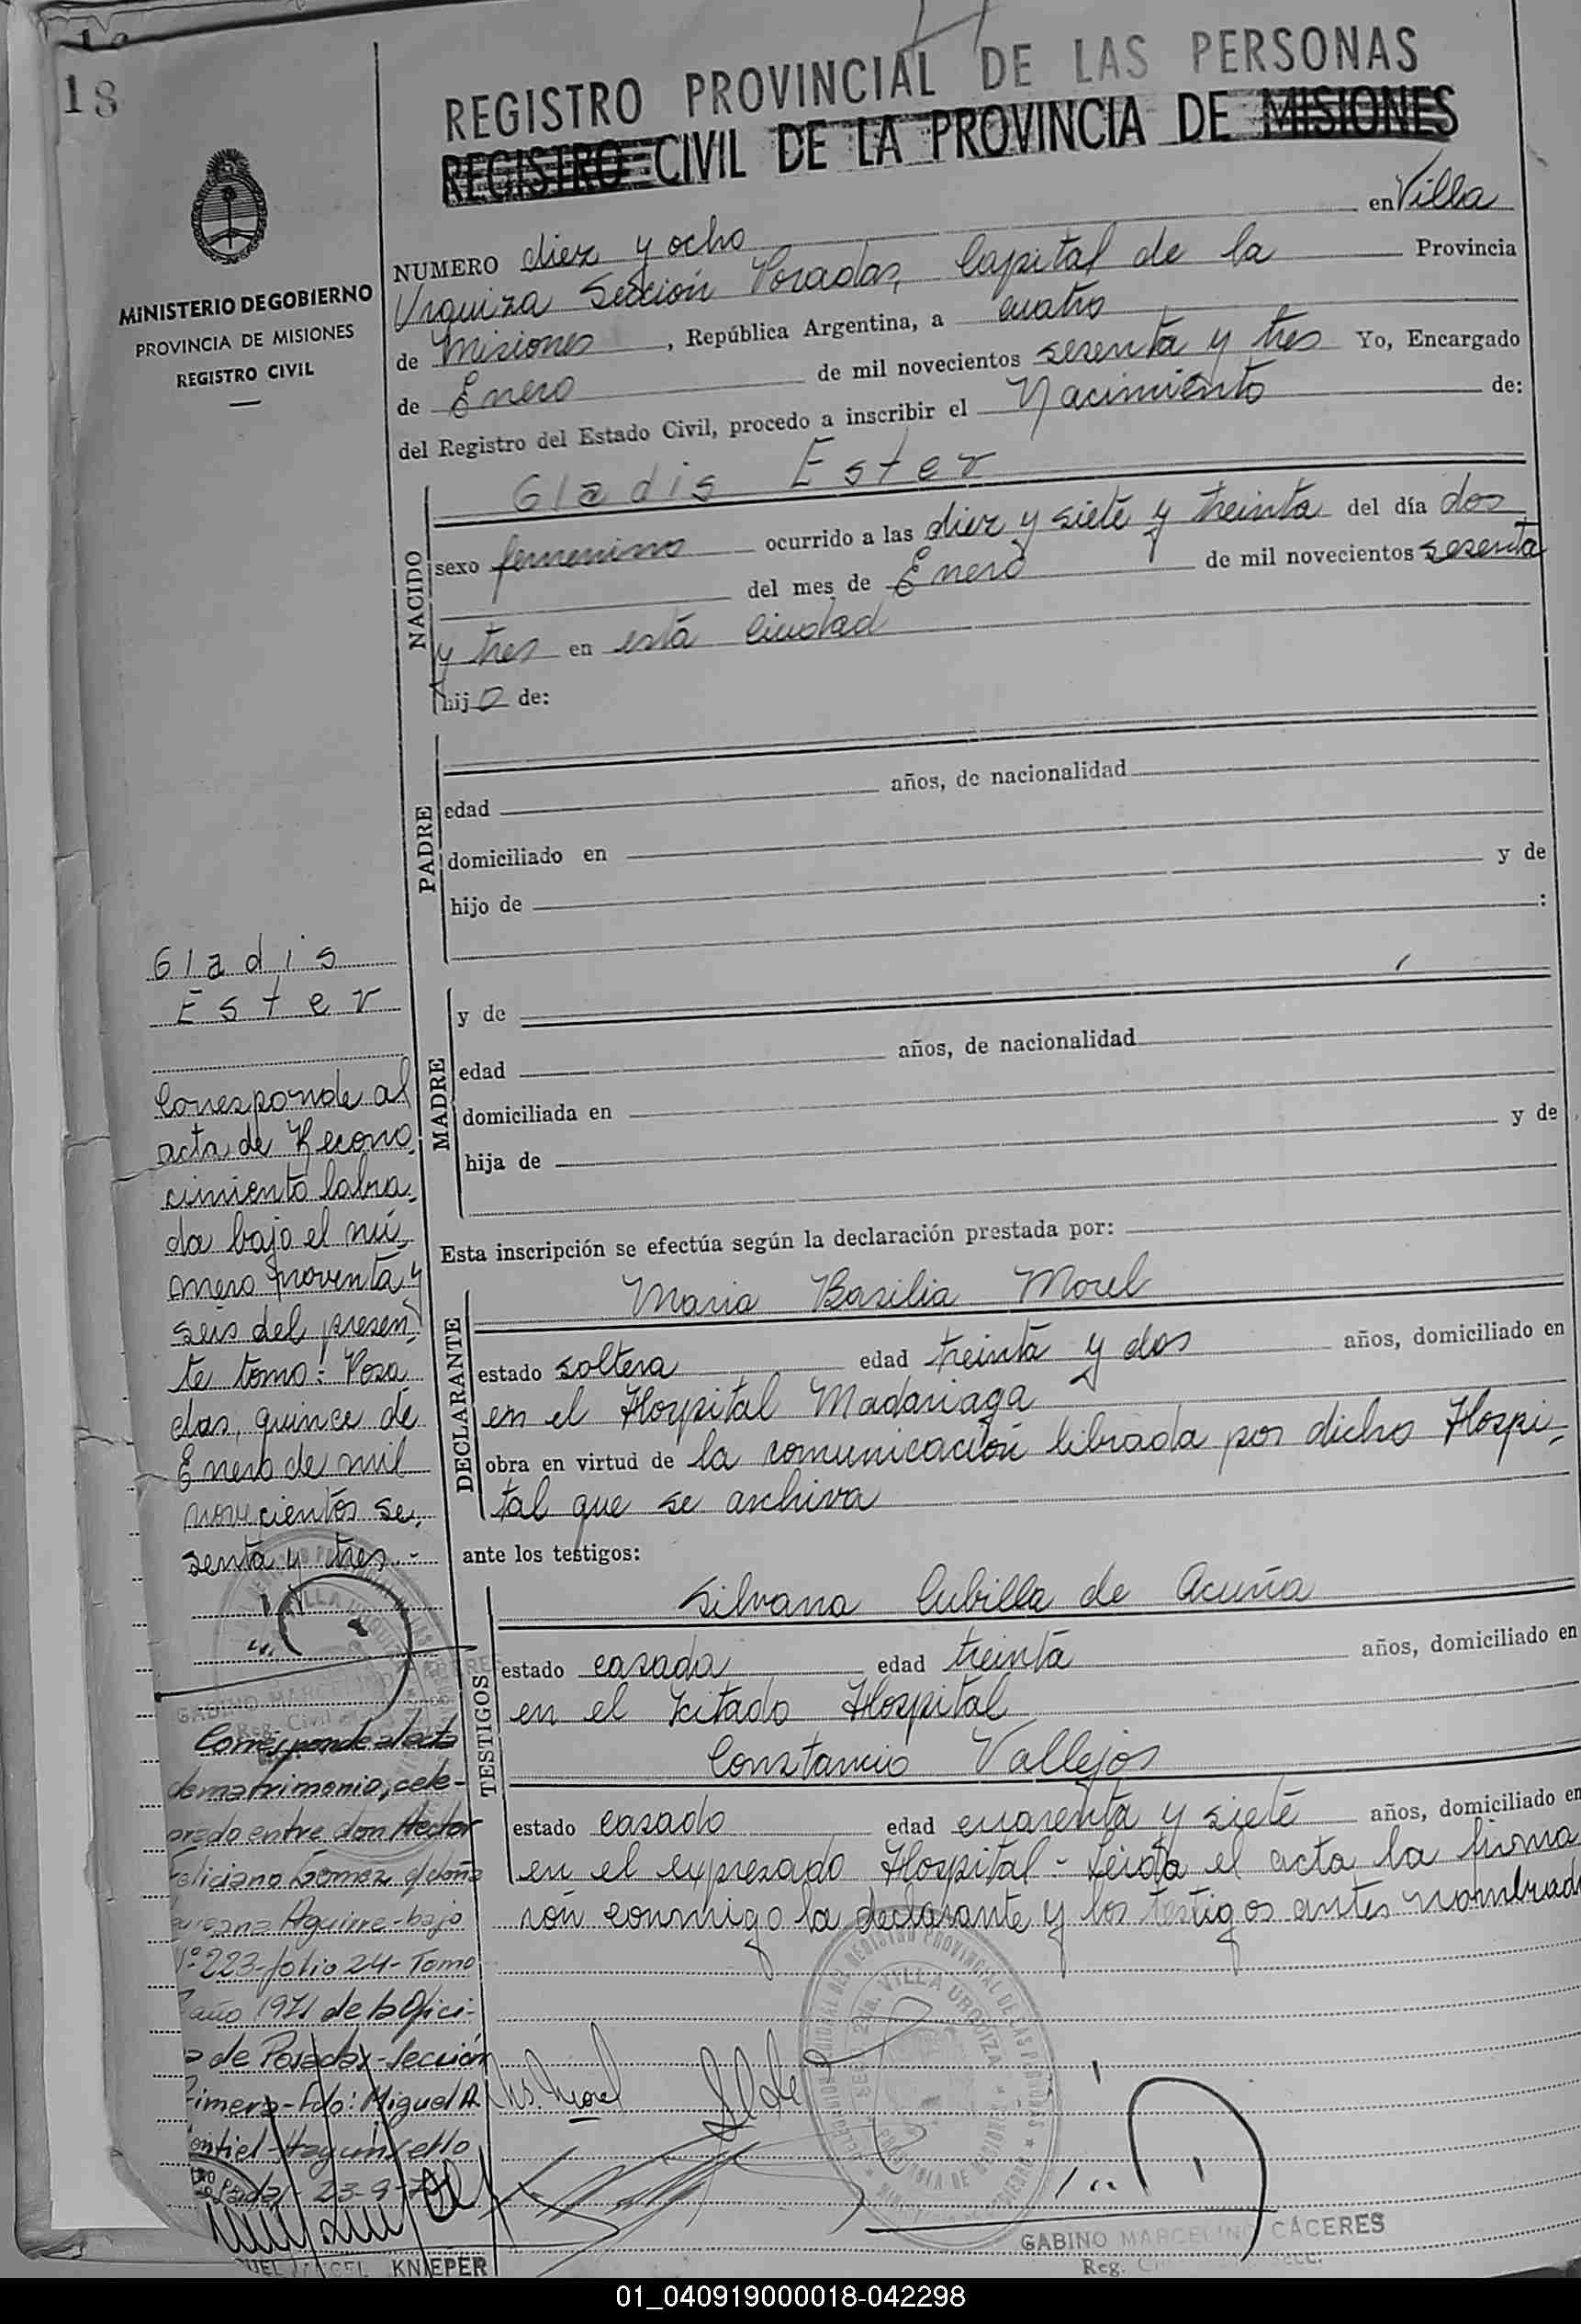 18
REGISTRO PROVINCIAL DE LAS PERSONAS
REGISTRO CIVIL DE LA PROVINCIA DE MISIONES
MINISTERIO DE GOBIERNO
PROVINCIA DE MISIONES
REGISTRO CIVIL
NUMERO diez y ocho en Villa
Urquiza Sección Posadas, Capital de la Provincia
de Misiones, República Argentina, a cuatro
de Enero de mil novecientos sesenta y tres Yo, Encargado
del Registro del Estado Civil, procedo a inscribir el Nacimiento de:
NACIDO
Gladis Ester
sexo femenino ocurrido a las diez y siete y treinta del día dos
del mes de Enero de mil novecientos sesenta
y tres en está ciudad
hija de:
PADRE
edad años, de nacionalidad
domiciliado en
hijo de y de
:
MADRE
y de
edad años, de nacionalidad
domiciliada en
hija de y de
Esta inscripción se efectúa según la declaración prestada por:
DECLARANTE
Maria Basilia Morel
estado soltera edad treinta y dos años, domiciliado en
en el Hospital Madariaga
obra en virtud de la comunicación librada por dicho Hospi-
tal que se archiva
ante los testigos:
TESTIGOS
Silvana Cubilla de Acuña
estado casada edad treinta años, domiciliado en
en el citado Hospital
Constancio Vallejos
estado casado edad cuarenta y siete años, domiciliado en
en el expresado Hospital - Leida el acta la firma
ron conmigo la declarante y los testigos antes nombrad
Gladis
Ester
Corresponde al
acta de Recono
cimiento labra-
da bajo el nú-
mero noventa y
seis del presen-
te tomo: Posa
das, quince de
Enero de mil
novecientos se-
senta y tres.-
GABINO MARCELINO CACERES
Reg. Civil
Corresponde al acta
de matrimonio, cele-
brado entre don Hector
Feliciano Gomez y doña
Aguirre - bajo
Nº 223 - folio 24 - Tomo
año 1971 de la Ofici-
a de Posadas - Sección
rimera - Fdo: Miguel A.
ontiel - Hay un sello
23-9-7
KNIEPER
Morel
DEL REGISTRO PROVINCIAL DE LAS PERSONAS
SEC. 2da. VILLA URQUIZA
PROVINCIA DE MISIONES
GABINO MARCELINO CÁCERES
Reg.
01_040919000018-042298